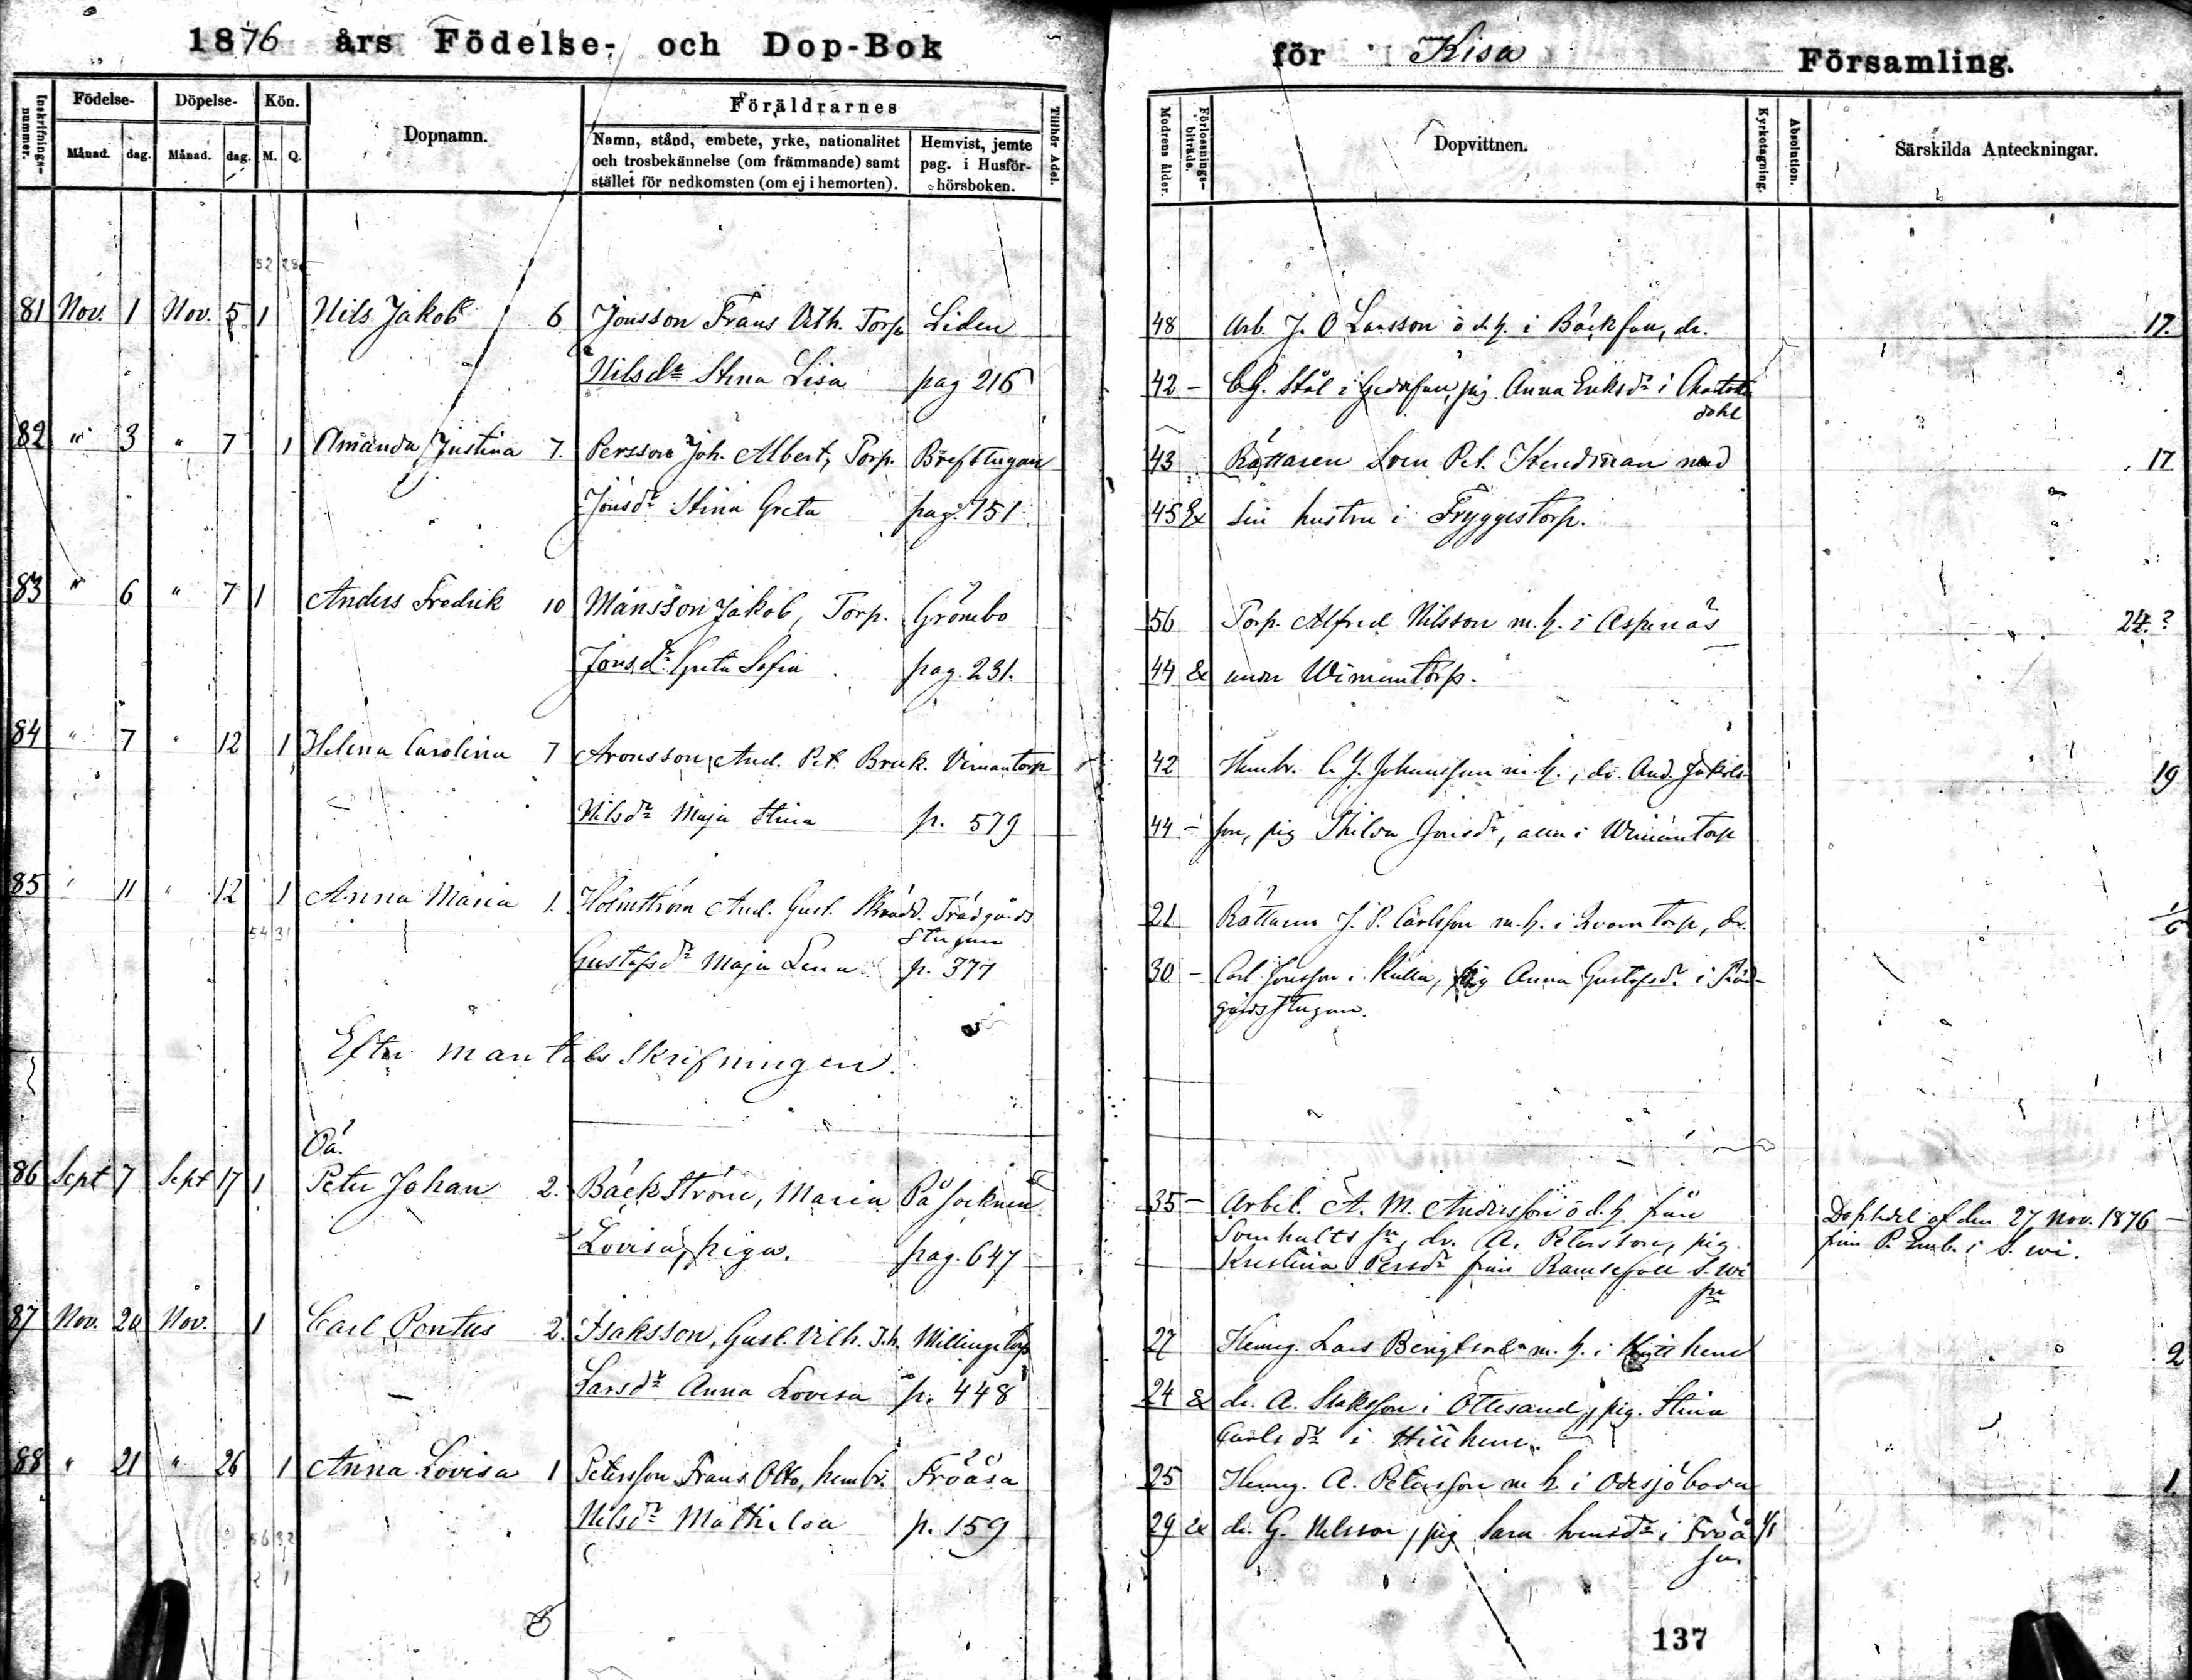 1876 års Födelse- och Dop-Bok för Kisa Församling.
Inskrifnings-nummer. Födelse- Månad. dag. Döpelse- Månad. dag. Kön. M. Q. Dopnamn. Föräldrarnes Tillhör Adel. Modrens ålder. Förlossnings-biträde. Dopvittnen. Kyrkotagning. Absolution. Särskilda Anteckningar.
Namn, stånd, embete, yrke, nationalitet Hemvist, jemte
och trosbekännelse (om främmande) samt pag. i Husför-
stället för nedkomsten (om ej i hemorten). hörsboken.
52 28
81 Nov. 1 Nov. 5 1 Nils Jakob 6 Jonsson Frans Vilh. Torp. Liden 48 Arb. J. O Larsson o d. h. i Bäckfan, dr. 17.
Nilsdr Stina Lisa pag 216 42 - C. G. Stål i pig Anna Eriksdr i Charlotten
dahl
82 " 3 " 7 1 Amanda Justina 7. Persson Joh. Albert, Torp. Brefstugan 43 Rättaren Sven Pet. Kindman med 17
Jonsdr Stina Greta pag. 151 45 Ex sin hustru i Fryggestorp.
83 " 6 " 7 1 Anders Fredrik 10 Månsson Jakob, Torp. Grömbo 56 Torp. Alfred Nilsson m. h. i Aspenäs 24. ?
Jonsdr Greta Sofia pag. 231. 44 Ex under Wimantorp.
84 " 7 " 12 1 Helena Carolina 7 Aronsson, And. Pet. Bruk. Vimantorp 42 Hembr. C. J. Johansson m. h., dr. And. Jakobs- 19
Nilsdr Maja Stina p. 579 44 - son, pig Thilda Jonsdr, alla i Wimantorp
85 " 11 " 12 1 Anna Maria 1. Holmström And. Gust. Skrädd. Trädgårds 21 Rättaren J. P. Carlsson m. h. i Kvarntorp, dr. 1/6
54 31 stugan
Gustafsdr Maja Lena p. 377 30 - Carl Jonsson i Kulla, pig Anna Gustafsdr i Träd-
gårdsstugan.
Efter mantalsskrifningen.
Oä.
86 Sept 7 Sept 17 1 Peter Johan 2. Bäckström, Maria På socknen 35 - Arbet. A. M. Andersson o d. h från Dopsedel af den 27 Nov. 1876
Somhults sn, dr. A. Petersson, pig från P. Emb. i S. Wi.
Lovisa, piga. pag. 647 Kristina Persdr från Ramsefall S. Wi
sn
87 Nov. 20 Nov. 1 Carl Pontus 2. Isaksson, Gust. Vilh. T.h. Millingetorp 27 Hemeg. Lars Bengtson m. h. i 2
Larsdr Anna Lovisa p. 448 24 Ex dr. A. Isaksson i Ottesand, pig. Stina
Carlsdr i
88 " 21 " 26 1 Anna Lovisa 1 Petersson Frans Otto, hembr. Fröåsa 25 Hemeg. A. Petersson m h i Odesjöboda 1.
Nilsdr Mathilda p. 159 29 Ex dr. G. Nilsson, pig Sara Svensdr i Fröå 1/1
sa
56 32
2 1
137